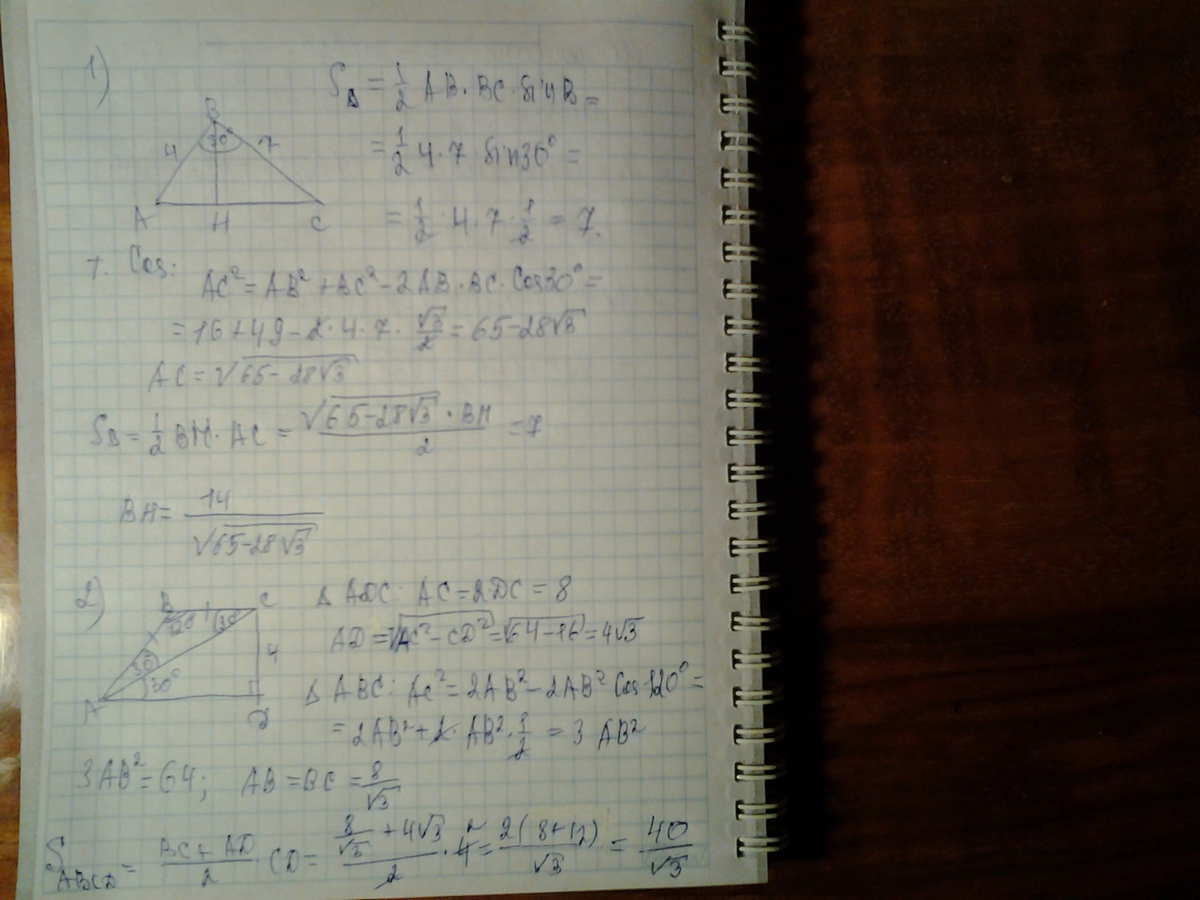 1)
S_Δ = 1/2 AB · BC · sin B =
= 1/2 4 · 7 sin 30° =
= 1/2 · 4 · 7 · 1/2 = 7.
B
4 30° 7
A H C
т. Cos:
AC² = AB² + BC² - 2AB · BC · Cos 30° =
= 16 + 49 - 2 · 4 · 7 · √3/2 = 65 - 28√3
AC = √(65 - 28√3)
S_Δ = 1/2 BH · AC = (√(65 - 28√3) · BH)/2 = 7
BH = 14/√(65 - 28√3)
2)
B C
120° 30°
30°
30° 4
A D
Δ ADC: AC = 2·DC = 8
AD = √(AC² - CD²) = √(64 - 16) = 4√3
Δ ABC: AC² = 2AB² - 2AB² Cos 120° =
= 2AB² + 2 · AB² · 1/2 = 3 AB²
3AB² = 64; AB = BC = 8/√3
S_ABCD = (BC + AD)/2 · CD = (8/√3 + 4√3)/2 · 4 2 = 2(8 + 12)/√3 = 40/√3